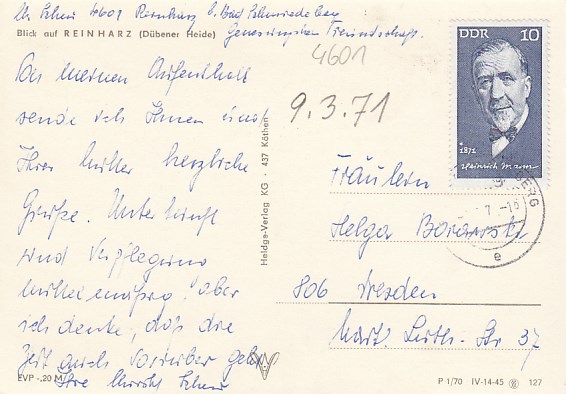 4601 Reinharz b. Bad Schmiedeberg
Blick auf REINHARZ (Dübener Heide)
Genesungsheim Freundschaft.
4601
9.3.71
DDR 10
* 1871
Heinrich Mann
BERG
e
Von meinem Aufenthalt
sende ich Ihnen und
Ihrer Mutter herzliche
Grüße. Unterkunft
und Verpflegung
mittelmäßig. Aber
ich denke, daß die
Zeit auch vorüber geht
Ihre
Heldge-Verlag KG · 437 Köthen
Fräulein
Helga
806 Dresden
Mart. Luth. Str 37
EVP -.20 M
P 1/70 IV-14-45 127